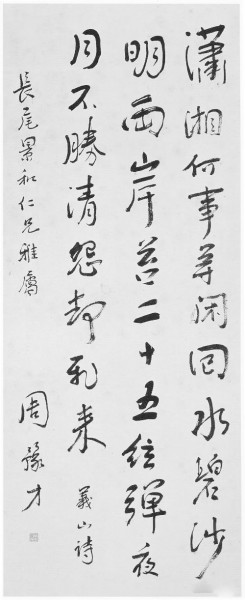 瀟湘何事等閑回水碧沙
明兩岸苔二十五絃彈夜
月不勝清怨却飛來 義山詩
長尾景和仁兄雅屬
周豫才